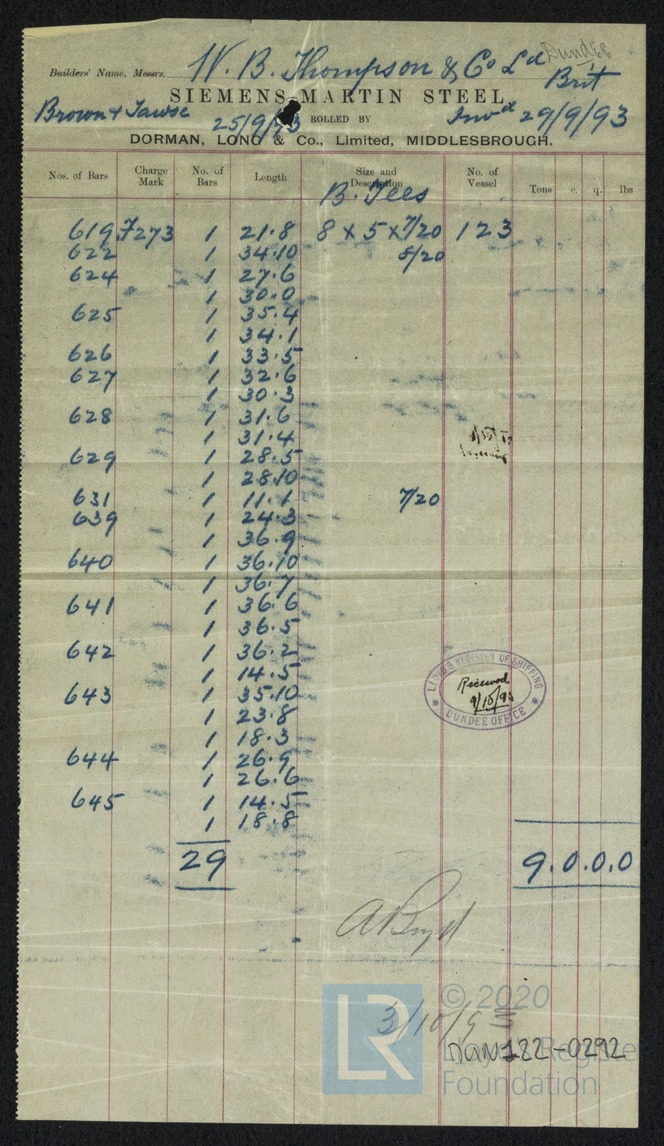 Dundee
Builders' Name, Messrs. W. B. Thompson & Co Ld
Brit
SIEMENS-MARTIN STEEL
Brown & Tawse 25/9/93 ROLLED BY Invd 29/9/93
DORMAN, LONG & Co., Limited, MIDDLESBROUGH.
Nos. of Bars Charge Mark No. of Bars Length Size and Description No. of Vessel Tons c. q. lbs
B. Tees
619 7273 1 21.8 8 x 5 x 7/20 123
622 1 34.10 8/20
624 1 27.6
1 30.0
625 1 35.4
1 34.1
626 1 33.5
627 1 32.6
1 30.3
628 1 31.6
1 31.4
629 1 28.5
1 28.10
631 1 11.1 7/20
639 1 24.3
1 36.9
640 1 36.10
1 36.7
641 1 36.6
1 36.5
642 1 36.2
1 14.5
643 1 35.10
1 23.8
1 18.3
644 1 26.9
1 26.6
645 1 14.5
1 18.8
LLOYD'S REGISTER OF SHIPPING
Received
9/10/93
DUNDEE OFFICE
29 9.0.0.0
A Boyd
3/10/93
DUN122-0292
LR
© 2020
Lloyd's Register
Foundation